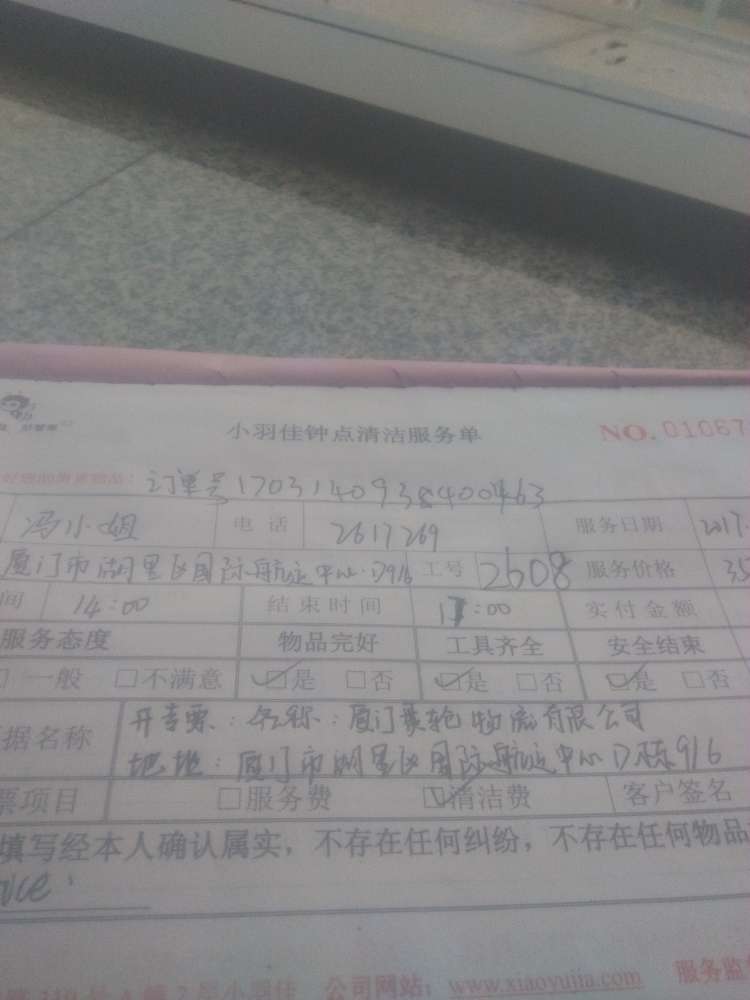 小羽佳钟点清洁服务单 NO. 01067
订单号1703140938400463
冯小姐 电话 2617269 服务日期 2017.
厦门市湖里区国际航运中心D916 工号 2608 服务价格 35
间 14:00 结束时间 17:00 实付金额
服务态度 物品完好 工具齐全 安全结束
□一般 □不满意 ☑是 □否 ☑是 □否 ☑是 □否
据名称 开专票:名称:厦门 轮物流有限公司
地址:厦门市湖里区国际航运中心D栋916
票项目 □服务费 ☑清洁费 客户签名
填写经本人确认属实,不存在任何纠纷,不存在任何物品
小羽佳 公司网站:www.xiaoyujia.com 服务监